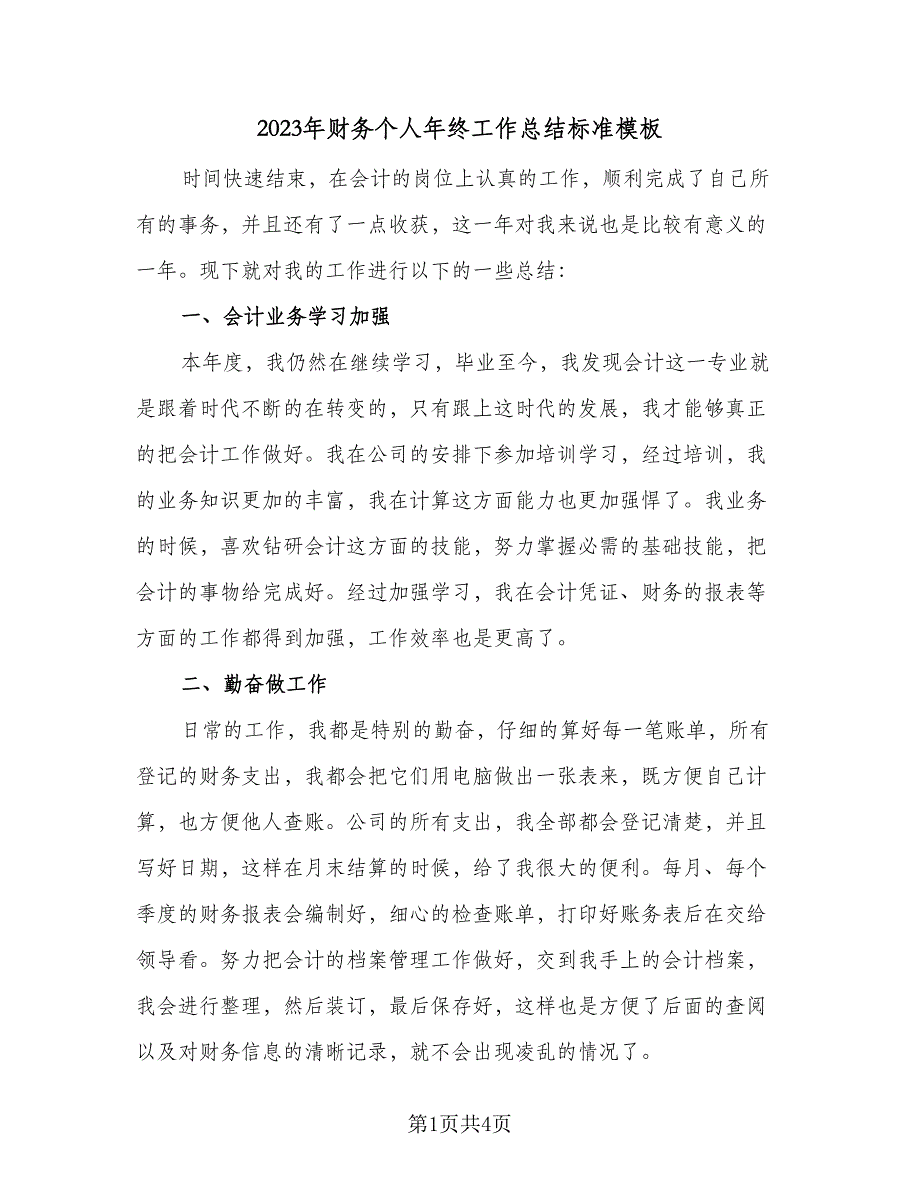 2023年财务个人年终工作总结标准模板
时间快速结束，在会计的岗位上认真的工作，顺利完成了自己所
有的事务，并且还有了一点收获，这一年对我来说也是比较有意义的
一年。现下就对我的工作进行以下的一些总结：
一、会计业务学习加强
本年度，我仍然在继续学习，毕业至今，我发现会计这一专业就
是跟着时代不断的在转变的，只有跟上这时代的发展，我才能够真正
的把会计工作做好。我在公司的安排下参加培训学习，经过培训，我
的业务知识更加的丰富，我在计算这方面能力也更加强悍了。我业务
的时候，喜欢钻研会计这方面的技能，努力掌握必需的基础技能，把
会计的事物给完成好。经过加强学习，我在会计凭证、财务的报表等
方面的工作都得到加强，工作效率也是更高了。
二、勤奋做工作
日常的工作，我都是特别的勤奋，仔细的算好每一笔账单，所有
登记的财务支出，我都会把它们用电脑做出一张表来，既方便自己计
算，也方便他人查账。公司的所有支出，我全部都会登记清楚，并且
写好日期，这样在月末结算的时候，给了我很大的便利。每月、每个
季度的财务报表会编制好，细心的检查账单，打印好账务表后在交给
领导看。努力把会计的档案管理工作做好，交到我手上的会计档案，
我会进行整理，然后装订，最后保存好，这样也是方便了后面的查阅
以及对财务信息的清晰记录，就不会出现凌乱的情况了。
第1页共4页